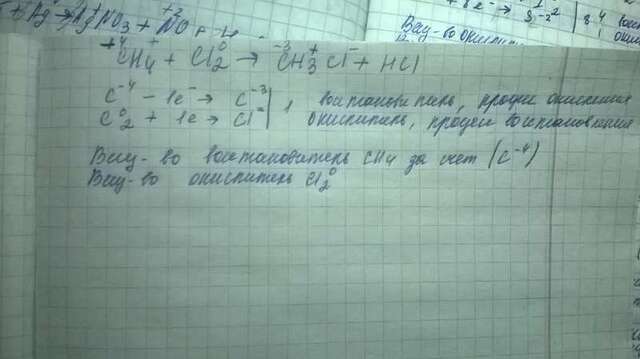 Ag → AgNO3 + NO
Вещ-во окислит
CH4 + Cl2 → CH3Cl + HCl
C⁻⁴ − 1e⁻ → C⁻³ | 1 восстановитель, процес окисления
Cl⁰2 + 1e → Cl⁻ | окислитель, процесс восстановления
Вещ-во восстановитель CH4 за счет (C⁻⁴)
Вещ-во окислитель Cl2⁰